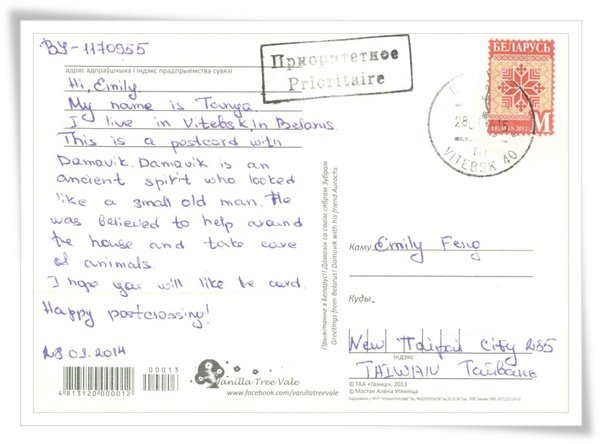 BY-1170955
адрас адпраўшчыка і індэкс прадпрыемства сувязі
Hi, Emily.
My name is Tanya.
I live in Vitebsk, In Belarus.
This is a postcard with
Damavik. Damavik is an
ancient spirit who looked
like a small old man. He
was believed to help around
the house and take care
of animals.
I hope you will like the card.
Happy postcrossing!
28.01.2014
00013
4813120000012
Vanilla Tree Vale
www.facebook.com/vanillatreevale
Приоритетное
Prioritaire
БЕЛАРУСЬ
BELARUS 2012
M
VITEBSK 40
Прывітанне з Беларусі! Дамавік са сваім сябрам Зубрам
Greetings from Belarus! Damavik with his friend Aurochs
Каму Emily Feng
Куды
New Taipei City 235
індэкс
TAIWAN Тайвань
© ТАА «Гвянці», 2013
© Мастак Алена Угляніца